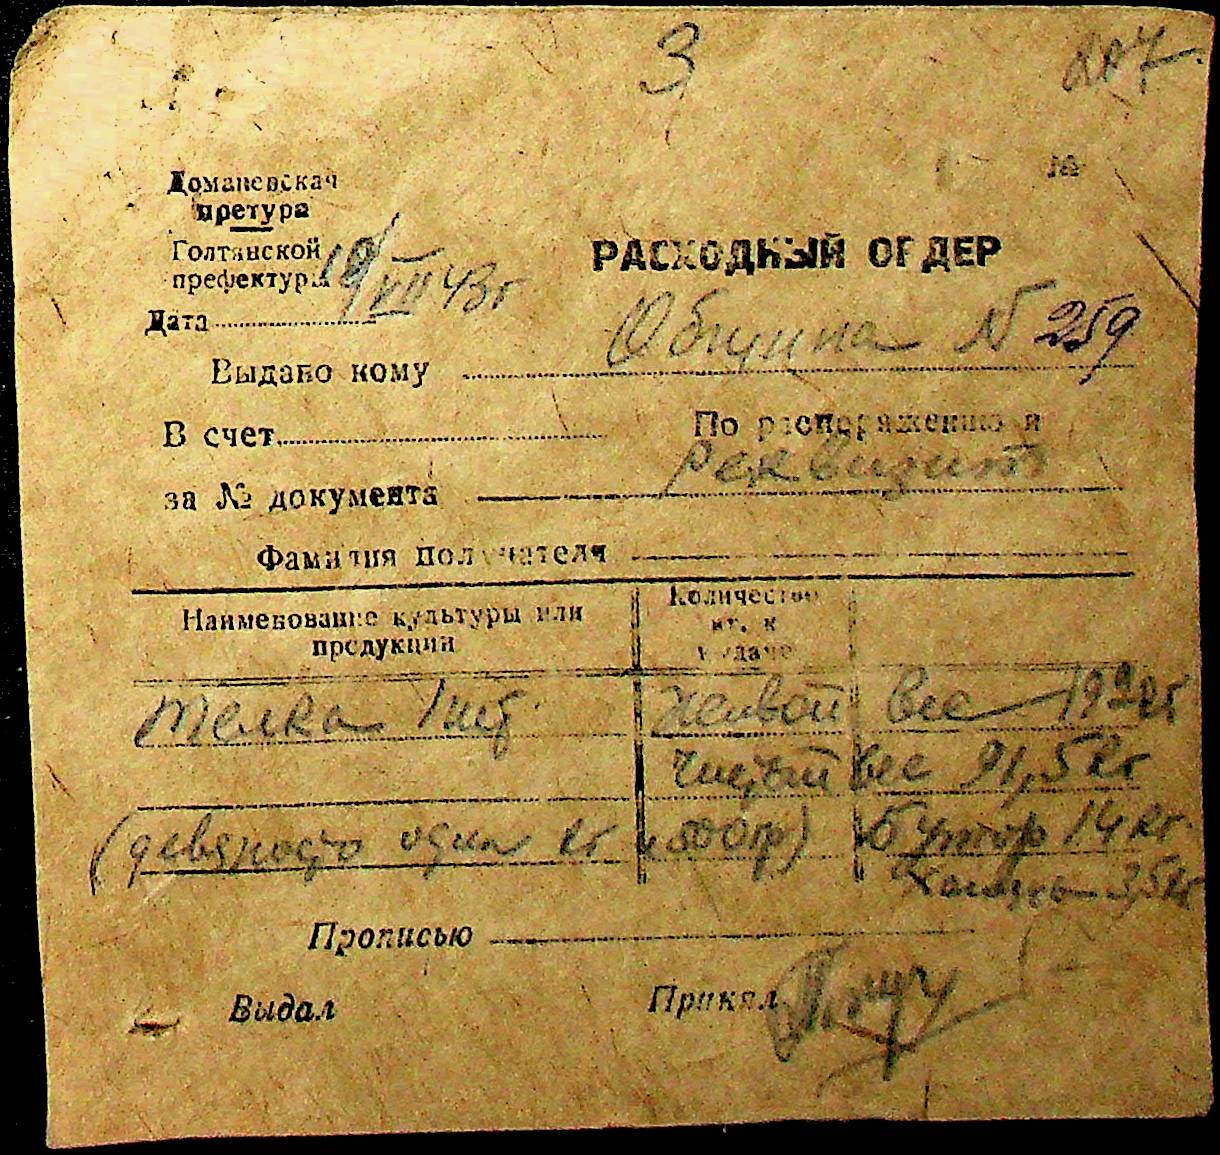 3
№
Доманевская
претура
Голтянской
префектуры
РАСХОДНЫЙ ОРДЕР
Дата 19/VII 43г
Выдано кому Община N 259
В счет По распоряжению и
реквизит
за № документа
Фамилия получателя
Наименование культуры или
продукции
Количество
кг. к
выдаче
Телка 1 шт. живой вес – 192 кг
чистый вес 91,5 кг
(девяносто один кг и 500 гр) бутор 14 кг
3,5 кг
Прописью
Выдал Принял